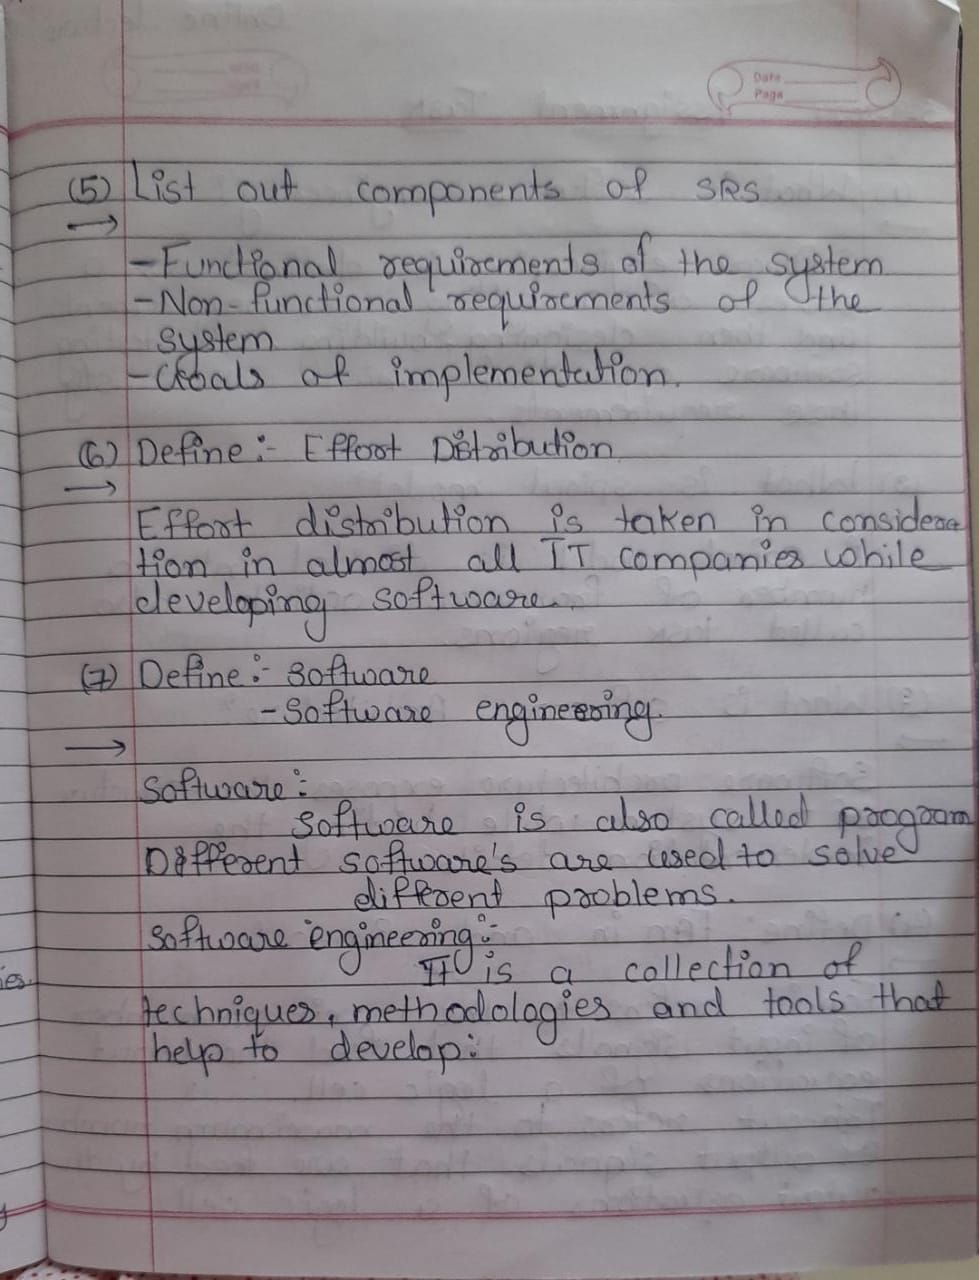 Date
Page
(5) List out components of SRS
→
- Functional requirements of the system
- Non-functional requirements of the
system
- Goals of implementation.
(6) Define:- Effort Distribution
→
Effort distribution is taken in considera
tion in almost all IT companies while
developing software.
(7) Define:- Software
- Software engineering.
→
Software:
Software is also called program
Different software's are used to solve
different problems.
Software engineering:-
It is a collection of
techniques, methodologies and tools that
help to develop:
ies.